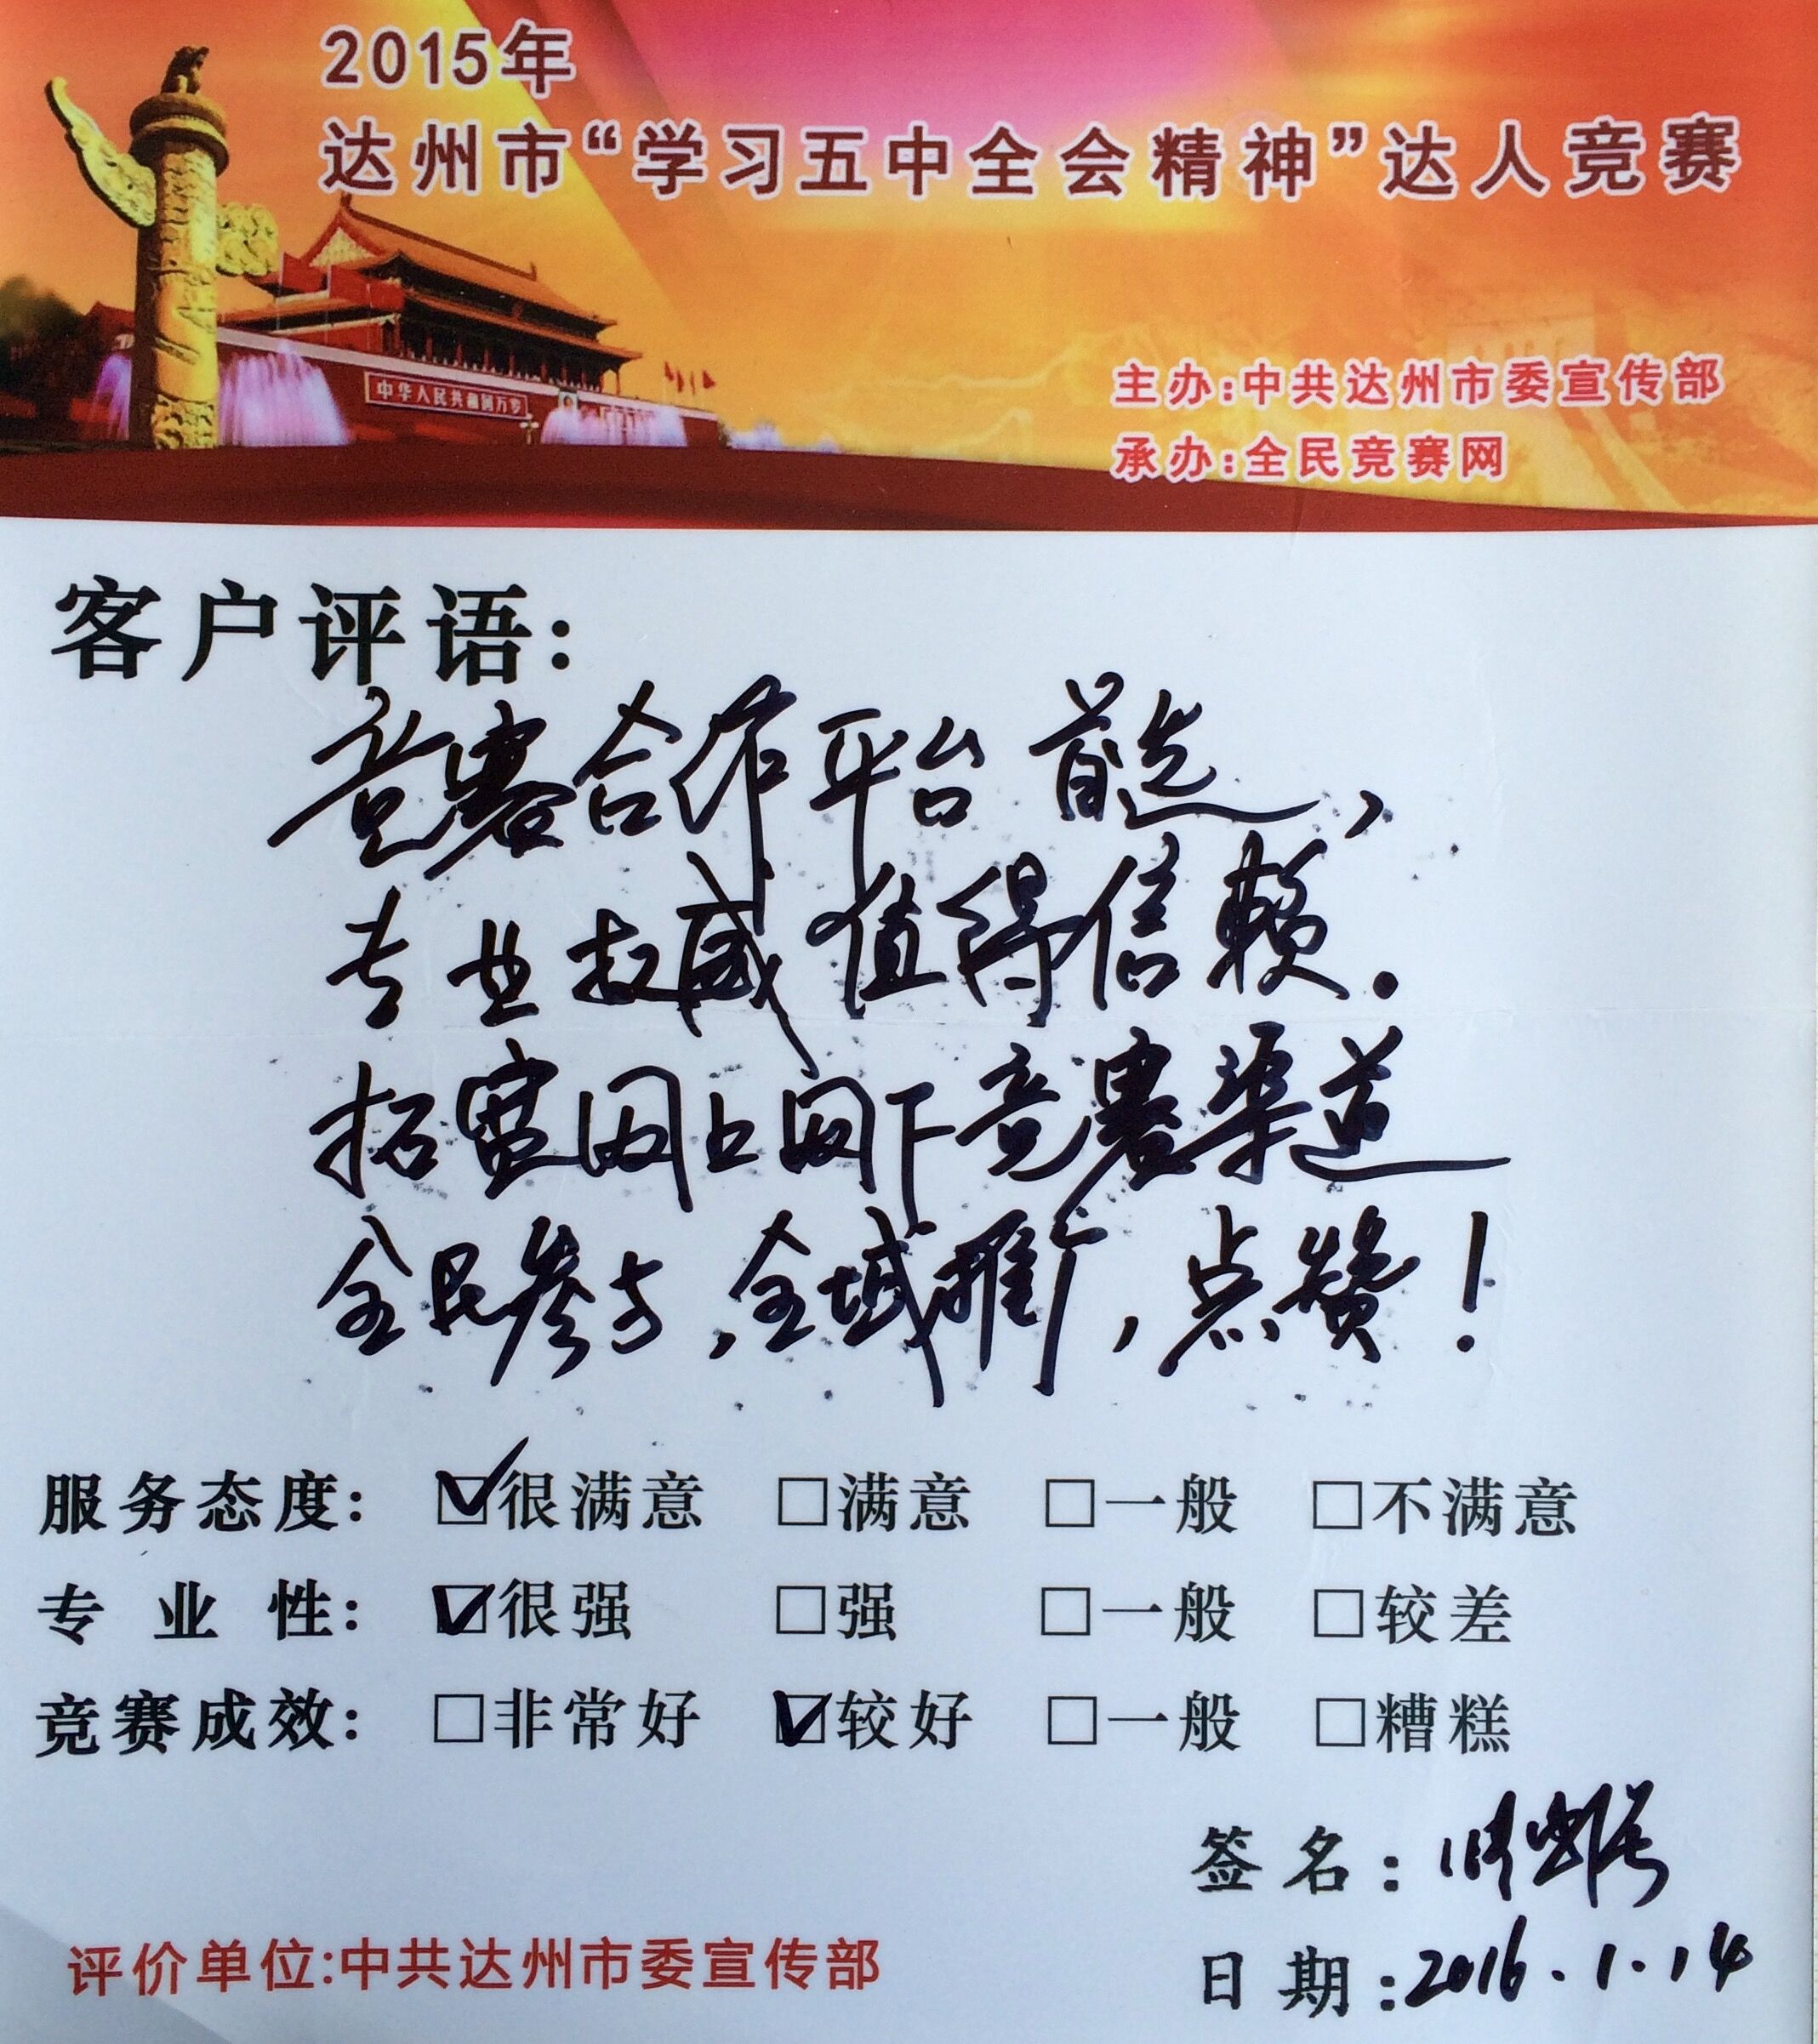 2015年
达州市“学习五中全会精神”达人竞赛
中华人民共和国万岁
主办:中共达州市委宣传部
承办:全民竞赛网
客户评语:
竞赛合作平台首选,
专业权威值得信赖.
拓宽网上网下竞赛渠道
全民参与,全域推广,点赞!
服务态度: ☑很满意 □满意 □一般 □不满意
专业性: ☑很强 □强 □一般 □较差
竞赛成效: □非常好 ☑较好 □一般 □糟糕
签名:
评价单位:中共达州市委宣传部
日期:2016.1.14